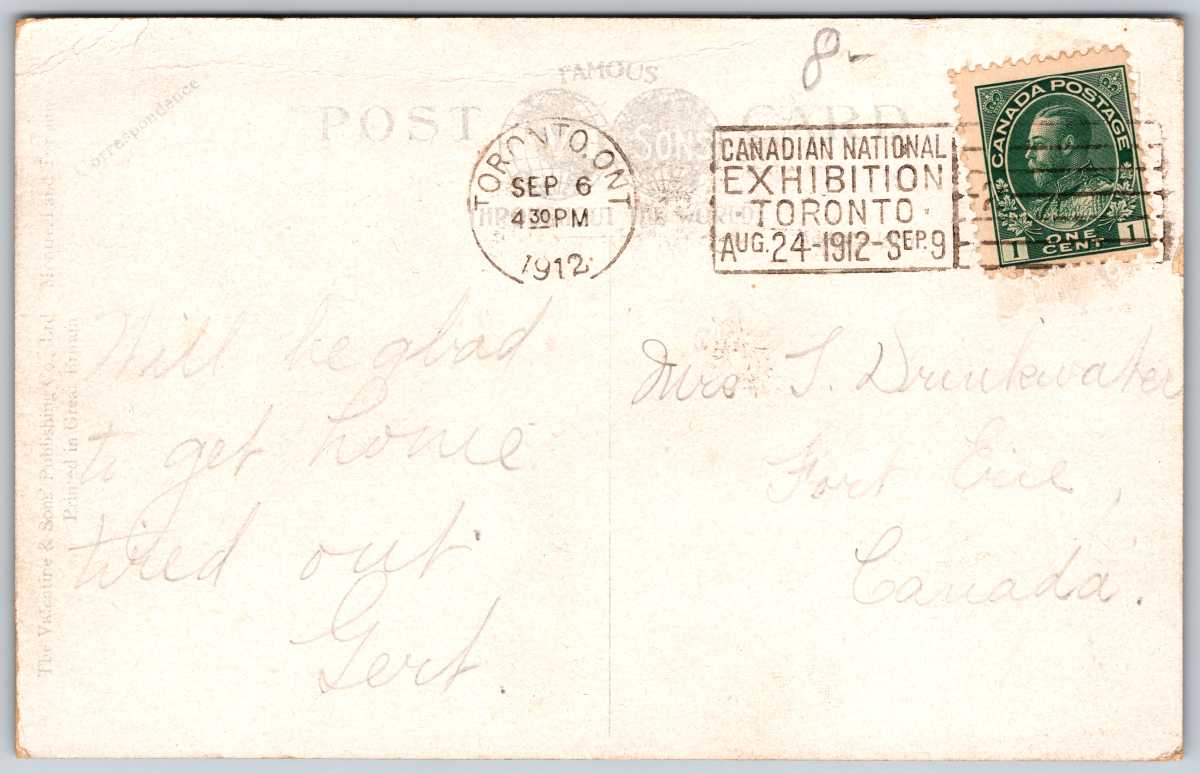 8-
FAMOUS
POST CARD
SONS
THROUGHOUT THE WORLD
TORONTO, ONT
SEP 6
4 30 PM
1912
CANADIAN NATIONAL
EXHIBITION
TORONTO
AUG. 24-1912-SEP. 9
CANADA POSTAGE
1 ONE CENT 1
orrespondance
The Valentine & Sons' Publishing Co., Ltd.
Printed in Great Britain
Will be glad
to get home
tired out
Gert.
Mrs. T. Drinkwater
Fort Erie,
Canada.